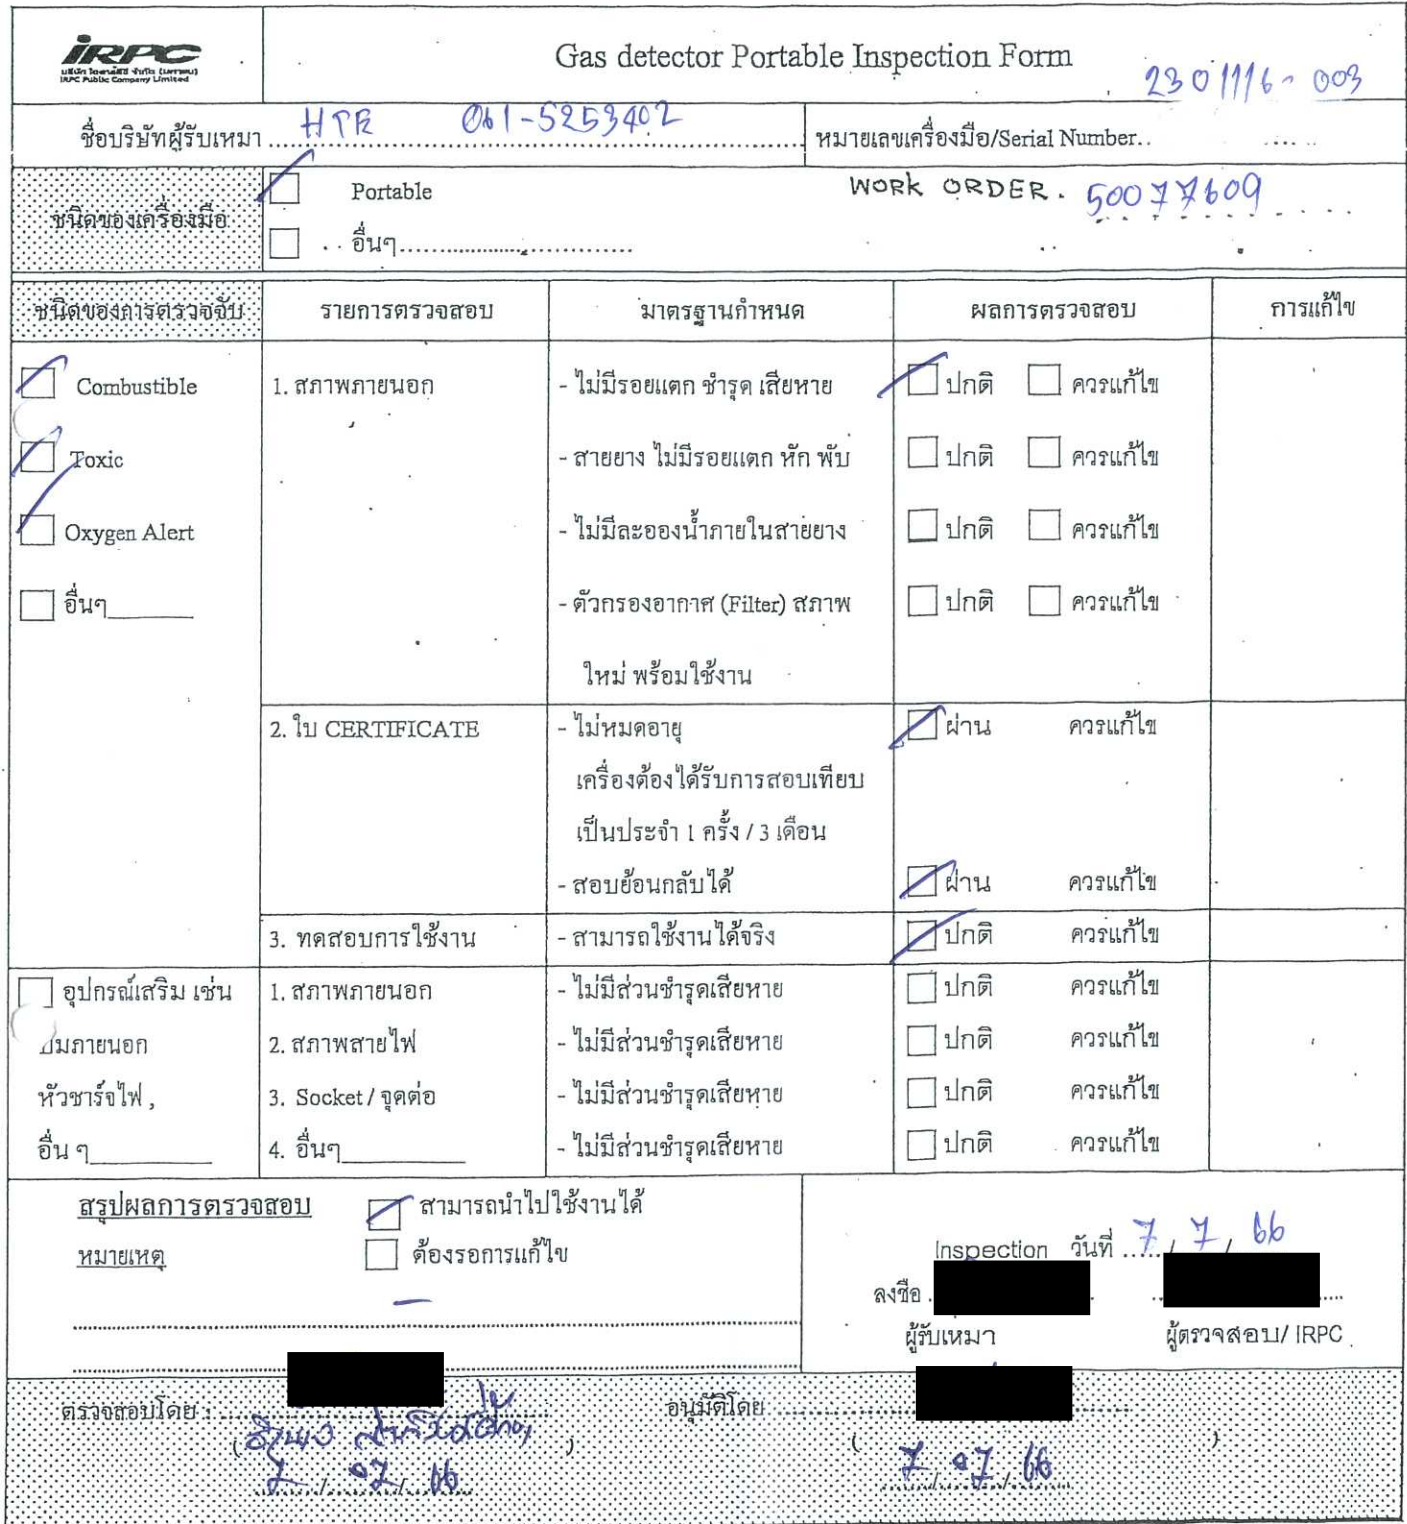 iRPC
บริษัท ไออาร์พีซี จำกัด (มหาชน)
IRPC Public Company Limited
Gas detector Portable Inspection Form
2301116-003
ชื่อบริษัทผู้รับเหมา HTE 061-5253402 หมายเลขเครื่องมือ/Serial Number
ชนิดของเครื่องมือ
Portable
WORK ORDER. 50077609
อื่นๆ
ชนิดของการตรวจจับ รายการตรวจสอบ มาตรฐานกำหนด ผลการตรวจสอบ การแก้ไข
Combustible 1. สภาพภายนอก - ไม่มีรอยแตก ชำรุด เสียหาย ปกติ ควรแก้ไข
Toxic - สายยาง ไม่มีรอยแตก หัก พับ ปกติ ควรแก้ไข
Oxygen Alert - ไม่มีละอองน้ำภายในสายยาง ปกติ ควรแก้ไข
อื่นๆ - ตัวกรองอากาศ (Filter) สภาพ ปกติ ควรแก้ไข
ใหม่ พร้อมใช้งาน
2. ใบ CERTIFICATE - ไม่หมดอายุ ผ่าน ควรแก้ไข
เครื่องต้องได้รับการสอบเทียบ
เป็นประจำ 1 ครั้ง / 3 เดือน
- สอบย้อนกลับได้ ผ่าน ควรแก้ไข
3. ทดสอบการใช้งาน - สามารถใช้งานได้จริง ปกติ ควรแก้ไข
อุปกรณ์เสริม เช่น 1. สภาพภายนอก - ไม่มีส่วนชำรุดเสียหาย ปกติ ควรแก้ไข
ปั๊มภายนอก 2. สภาพสายไฟ - ไม่มีส่วนชำรุดเสียหาย ปกติ ควรแก้ไข
หัวชาร์จไฟ , 3. Socket / จุดต่อ - ไม่มีส่วนชำรุดเสียหาย ปกติ ควรแก้ไข
อื่น ๆ 4. อื่นๆ - ไม่มีส่วนชำรุดเสียหาย ปกติ ควรแก้ไข
สรุปผลการตรวจสอบ สามารถนำไปใช้งานได้
หมายเหตุ ต้องรอการแก้ไข
Inspection วันที่ 7 / 7 / 66
ลงชื่อ
ผู้รับเหมา ผู้ตรวจสอบ/ IRPC
ตรวจสอบโดย : อนุมัติโดย
7 / 07 / 66 7 / 07 / 66